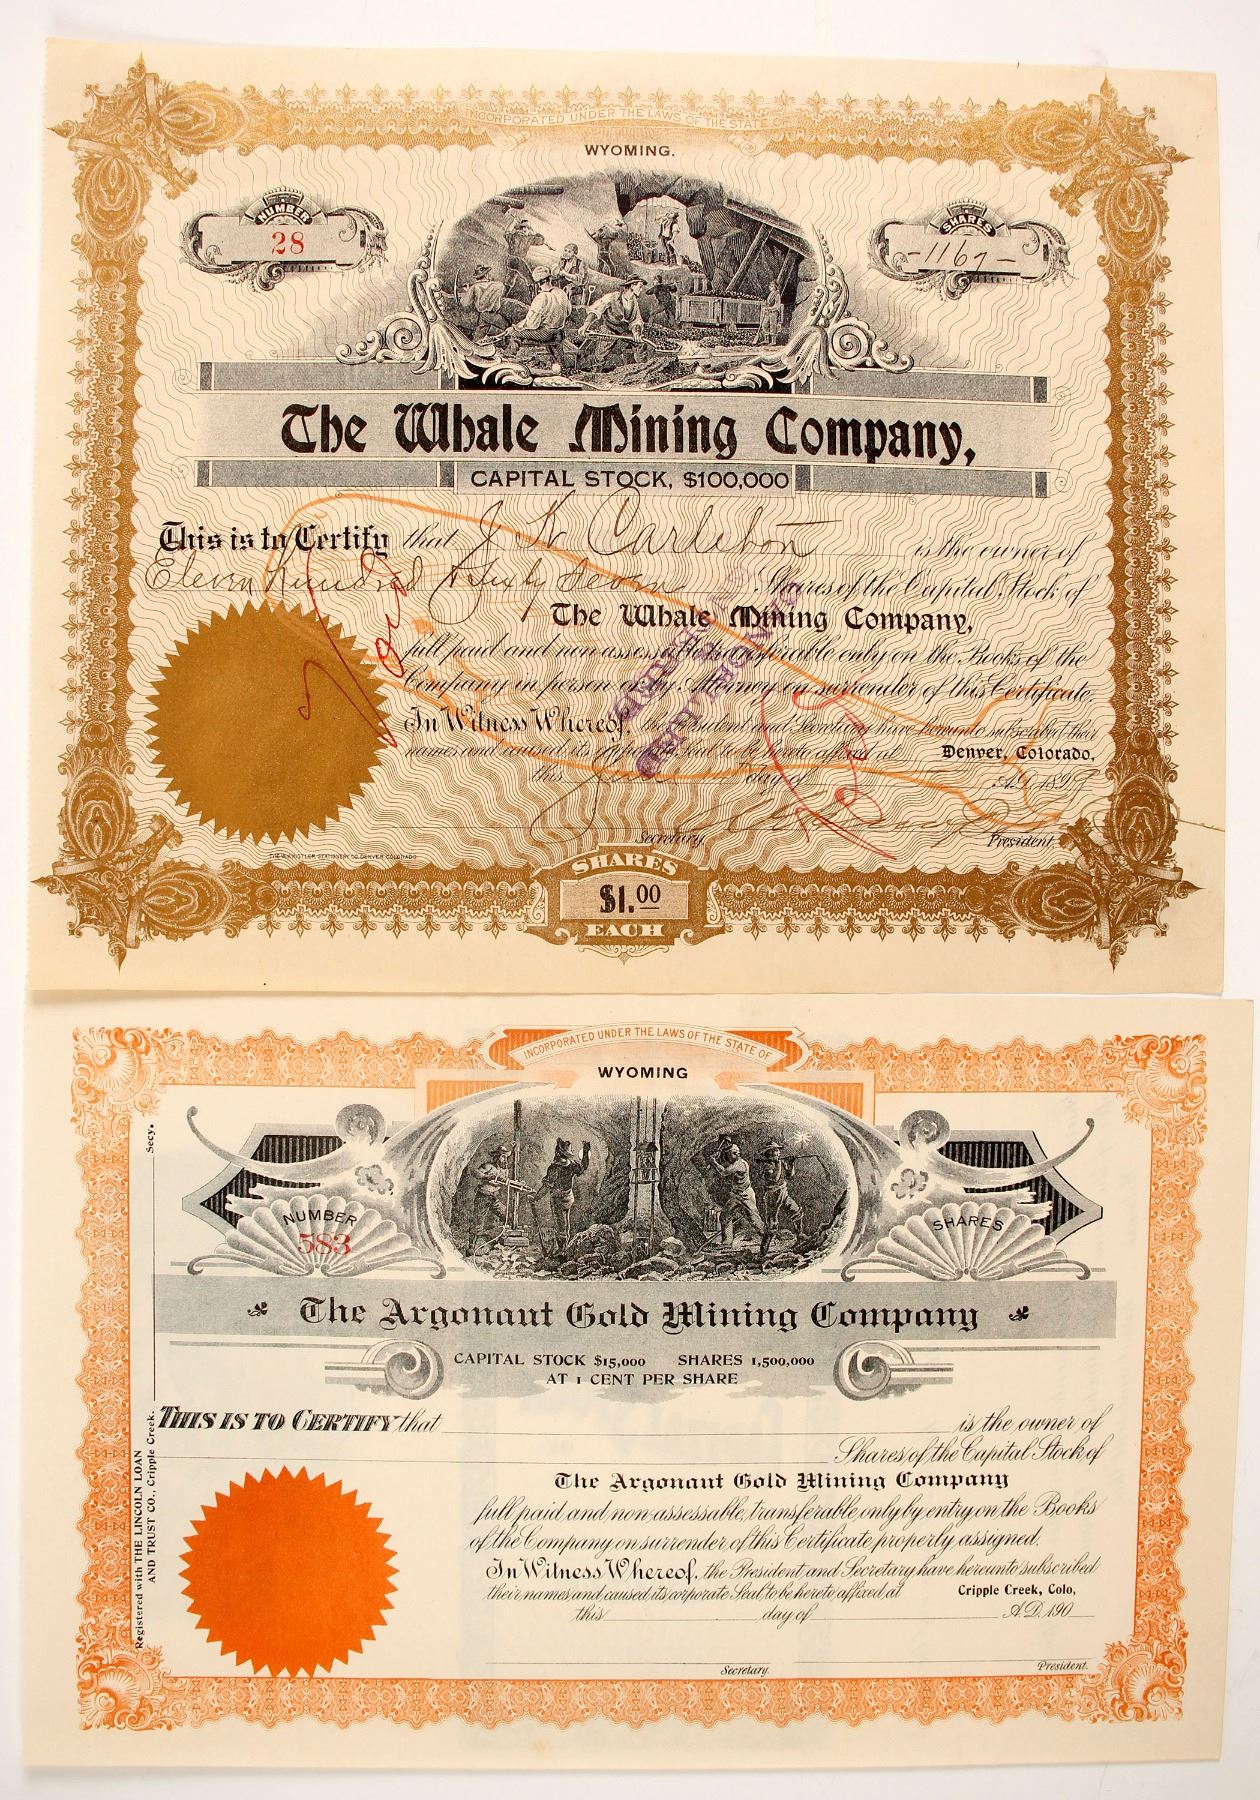 INCORPORATED UNDER THE LAWS OF THE STATE OF
WYOMING.
NUMBER
28
SHARES
-1167-
The Whale Mining Company,
CAPITAL STOCK, $100,000
This is to Certify that J W Carleton is the owner of
Eleven Hundred & Sixty Seven Shares of the Capital Stock of
The Whale Mining Company,
full paid and non assessable transferable only on the Books of the
Company in person or by Attorney on surrender of this Certificate.
In Witness Whereof, the President and Secretary have hereunto subscribed their
names and caused its corporate Seal to be hereto affixed at Denver, Colorado,
this day of A.D. 1897
Void
Secretary. President
THE W.H. KISTLER STATIONERY CO. DENVER COLORADO
SHARES
$1.00
EACH
INCORPORATED UNDER THE LAWS OF THE STATE OF
WYOMING
NUMBER
583
SHARES
The Argonaut Gold Mining Company
CAPITAL STOCK $15,000 SHARES 1,500,000
AT 1 CENT PER SHARE
THIS IS TO CERTIFY that is the owner of
Shares of the Capital Stock of
The Argonaut Gold Mining Company
full paid and non-assessable, transferable only by entry on the Books
of the Company on surrender of this Certificate properly assigned.
In Witness Whereof, the President and Secretary have hereunto subscribed
their names and caused its corporate Seal to be hereto affixed at Cripple Creek, Colo,
this day of A.D. 190
Secretary. President.
Registered with THE LINCOLN LOAN
AND TRUST CO., Cripple Creek. Secy.